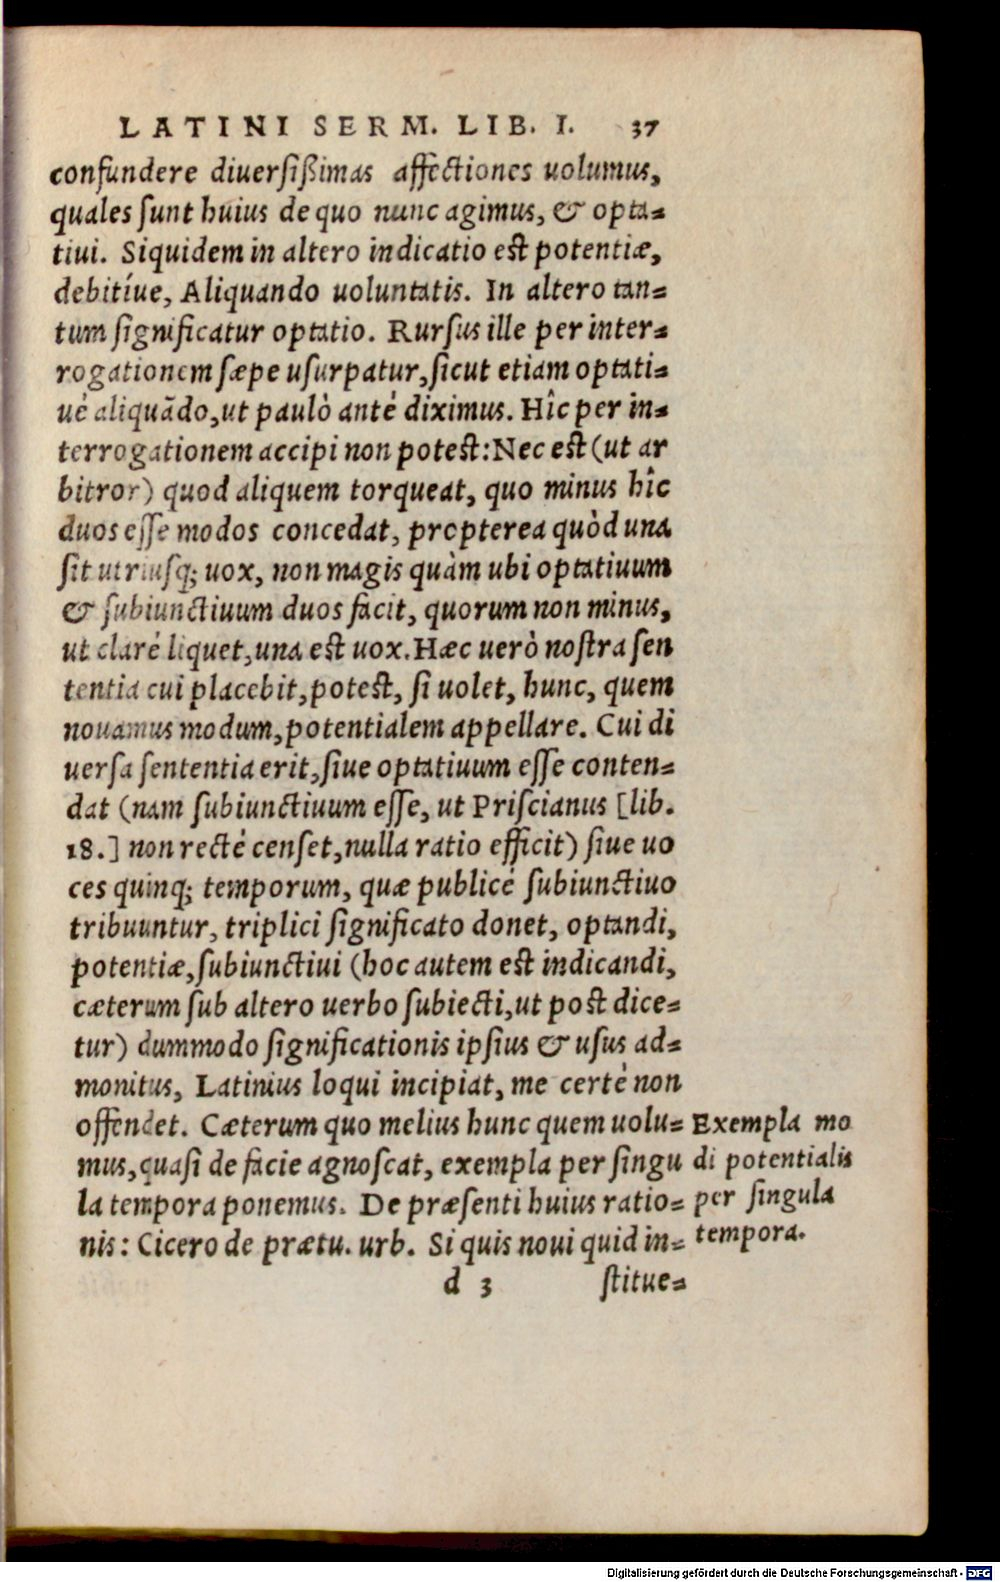 LATINI SERM. LIB. I. 37
confundere diuersißimas affectiones uolumus,
quales sunt huius de quo nunc agimus, & opta-
tiui. Siquidem in altero indicatio est potentiæ,
debitíue, Aliquando uoluntatis. In altero tan-
tum significatur optatio. Rursus ille per inter-
rogationem sæpe usurpatur, sicut etiam optati-
ué aliquãdo, ut paulò anté diximus. Hîc per in-
terrogationem accipi non potest: Nec est (ut ar
bitror) quod aliquem torqueat, quo minus hîc
duos esse modos concedat, propterea quòd una
sit utriusq; uox, non magis quàm ubi optatiuum
& subiunctiuum duos facit, quorum non minus,
ut claré liquet, una est uox. Hæc uerò nostra sen
tentia cui placebit, potest, si uolet, hunc, quem
nouamus modum, potentialem appellare. Cui di
uersa sententia erit, siue optatiuum esse conten-
dat (nam subiunctiuum esse, ut Priscianus [lib.
18.] non recté censet, nulla ratio efficit) siue uo
ces quinq; temporum, quæ publicé subiunctiuo
tribuuntur, triplici significato donet, optandi,
potentiæ, subiunctiui (hoc autem est indicandi,
cæterum sub altero uerbo subiecti, ut post dice-
tur) dummodo significationis ipsius & usus ad-
monitus, Latinius loqui incipiat, me certè non
offendet. Cæterum quo melius hunc quem uolu-
mus, quasi de facie agnoscat, exempla per singu
la tempora ponemus. De præsenti huius ratio-
nis: Cicero de prætu. urb. Si quis noui quid in-
Exempla mo
di potentialis
per singula
tempora.
d 3 stitue-
Digitalisierung gefördert durch die Deutsche Forschungsgemeinschaft - DFG